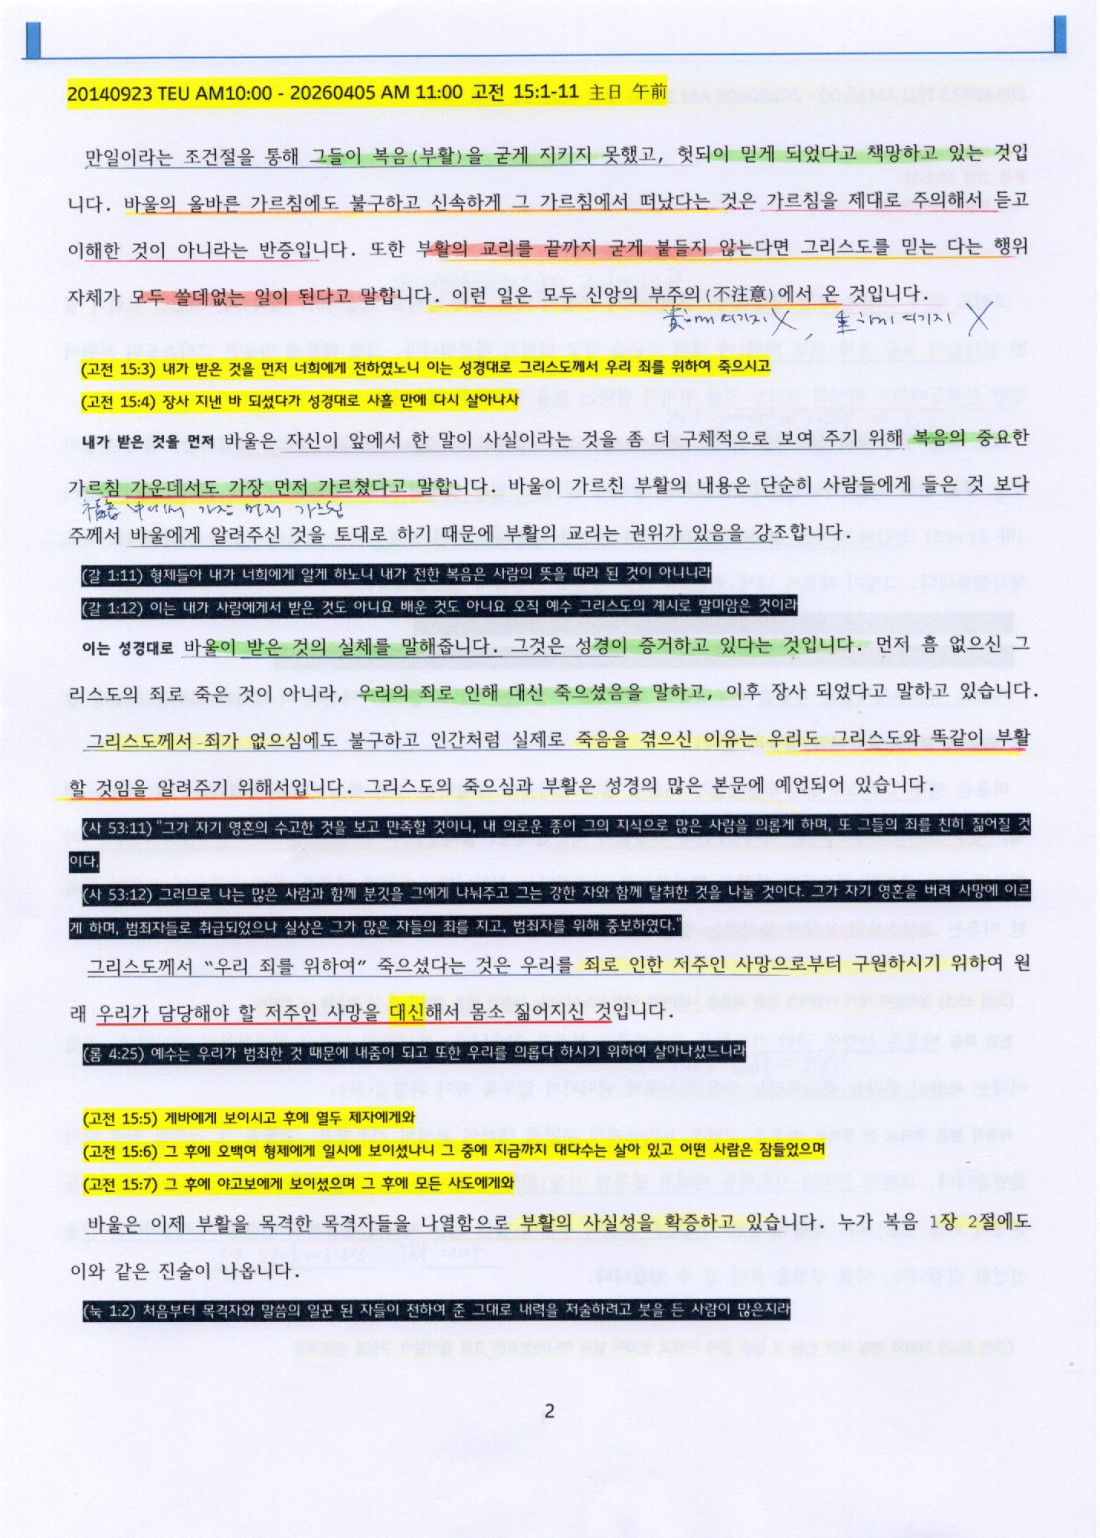 20140923 TEU AM10:00 - 20260405 AM 11:00 고전 15:1-11 主日 午前
만일이라는 조건절을 통해 그들이 복음(부활)을 굳게 지키지 못했고, 헛되이 믿게 되었다고 책망하고 있는 것입
니다. 바울의 올바른 가르침에도 불구하고 신속하게 그 가르침에서 떠났다는 것은 가르침을 제대로 주의해서 듣고
이해한 것이 아니라는 반증입니다. 또한 부활의 교리를 끝까지 굳게 붙들지 않는다면 그리스도를 믿는 다는 행위
자체가 모두 쓸데없는 일이 된다고 말합니다. 이런 일은 모두 신앙의 부주의(不注意)에서 온 것입니다.
여기지 X, 重하게 여기지 X
(고전 15:3) 내가 받은 것을 먼저 너희에게 전하였노니 이는 성경대로 그리스도께서 우리 죄를 위하여 죽으시고
(고전 15:4) 장사 지낸 바 되셨다가 성경대로 사흘 만에 다시 살아나사
내가 받은 것을 먼저 바울은 자신이 앞에서 한 말이 사실이라는 것을 좀 더 구체적으로 보여 주기 위해 복음의 중요한
가르침 가운데서도 가장 먼저 가르쳤다고 말합니다. 바울이 가르친 부활의 내용은 단순히 사람들에게 들은 것 보다
福音 中에서 가장 먼저 가르침
주께서 바울에게 알려주신 것을 토대로 하기 때문에 부활의 교리는 권위가 있음을 강조합니다.
(갈 1:11) 형제들아 내가 너희에게 알게 하노니 내가 전한 복음은 사람의 뜻을 따라 된 것이 아니니라
(갈 1:12) 이는 내가 사람에게서 받은 것도 아니요 배운 것도 아니요 오직 예수 그리스도의 계시로 말미암은 것이라
이는 성경대로 바울이 받은 것의 실체를 말해줍니다. 그것은 성경이 증거하고 있다는 것입니다. 먼저 흠 없으신 그
리스도의 죄로 죽은 것이 아니라, 우리의 죄로 인해 대신 죽으셨음을 말하고, 이후 장사 되었다고 말하고 있습니다.
그리스도께서 죄가 없으심에도 불구하고 인간처럼 실제로 죽음을 겪으신 이유는 우리도 그리스도와 똑같이 부활
할 것임을 알려주기 위해서입니다. 그리스도의 죽으심과 부활은 성경의 많은 본문에 예언되어 있습니다.
(사 53:11) "그가 자기 영혼의 수고한 것을 보고 만족할 것이니, 내 의로운 종이 그의 지식으로 많은 사람을 의롭게 하며, 또 그들의 죄를 친히 짊어질 것
이다.
(사 53:12) 그러므로 나는 많은 사람과 함께 분깃을 그에게 나눠주고 그는 강한 자와 함께 탈취한 것을 나눌 것이다. 그가 자기 영혼을 버려 사망에 이르
게 하며, 범죄자들로 취급되었으나 실상은 그가 많은 자들의 죄를 지고, 범죄자를 위해 중보하였다."
그리스도께서 “우리 죄를 위하여” 죽으셨다는 것은 우리를 죄로 인한 저주인 사망으로부터 구원하시기 위하여 원
래 우리가 담당해야 할 저주인 사망을 대신해서 몸소 짊어지신 것입니다.
(롬 4:25) 예수는 우리가 범죄한 것 때문에 내줌이 되고 또한 우리를 의롭다 하시기 위하여 살아나셨느니라
(고전 15:5) 게바에게 보이시고 후에 열두 제자에게와
(고전 15:6) 그 후에 오백여 형제에게 일시에 보이셨나니 그 중에 지금까지 대다수는 살아 있고 어떤 사람은 잠들었으며
(고전 15:7) 그 후에 야고보에게 보이셨으며 그 후에 모든 사도에게와
바울은 이제 부활을 목격한 목격자들을 나열함으로 부활의 사실성을 확증하고 있습니다. 누가 복음 1장 2절에도
이와 같은 진술이 나옵니다.
(눅 1:2) 처음부터 목격자와 말씀의 일꾼 된 자들이 전하여 준 그대로 내력을 저술하려고 붓을 든 사람이 많은지라
2